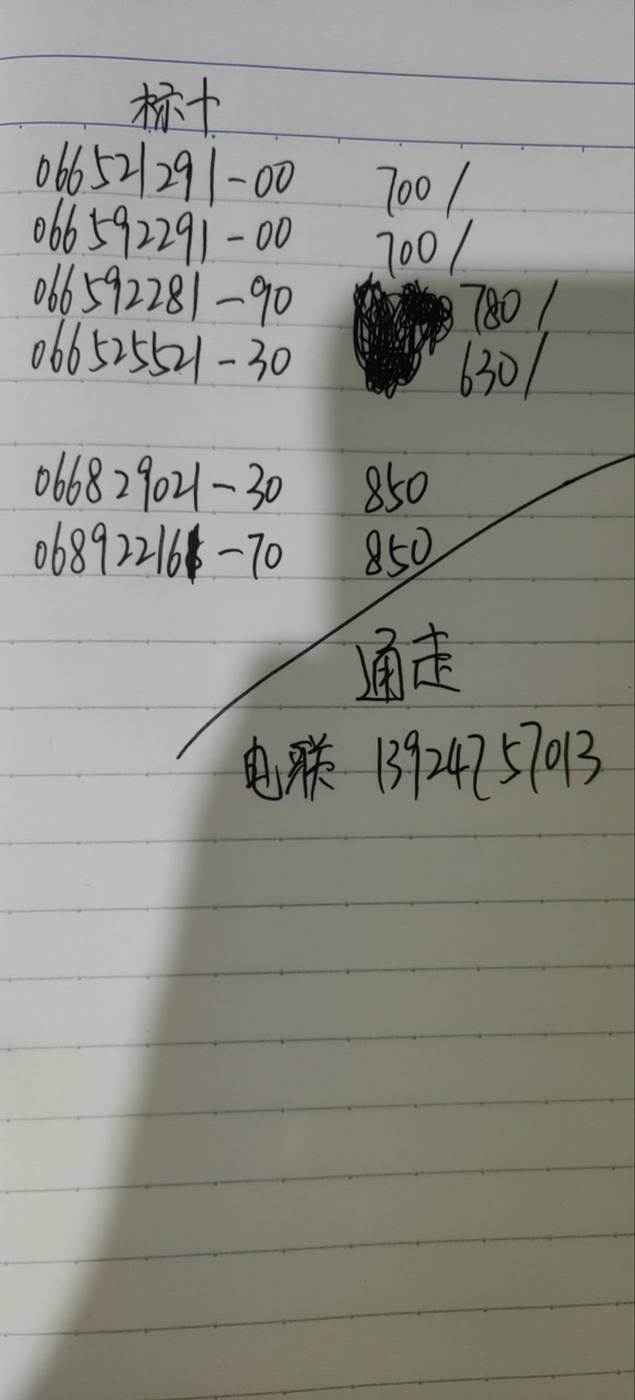 标十
066521291-00 700/
066592291-00 700/
066592281-90 780/
066525521-30 630/
066829021-30 850
068922161-70 850
通走
电联 13924757013